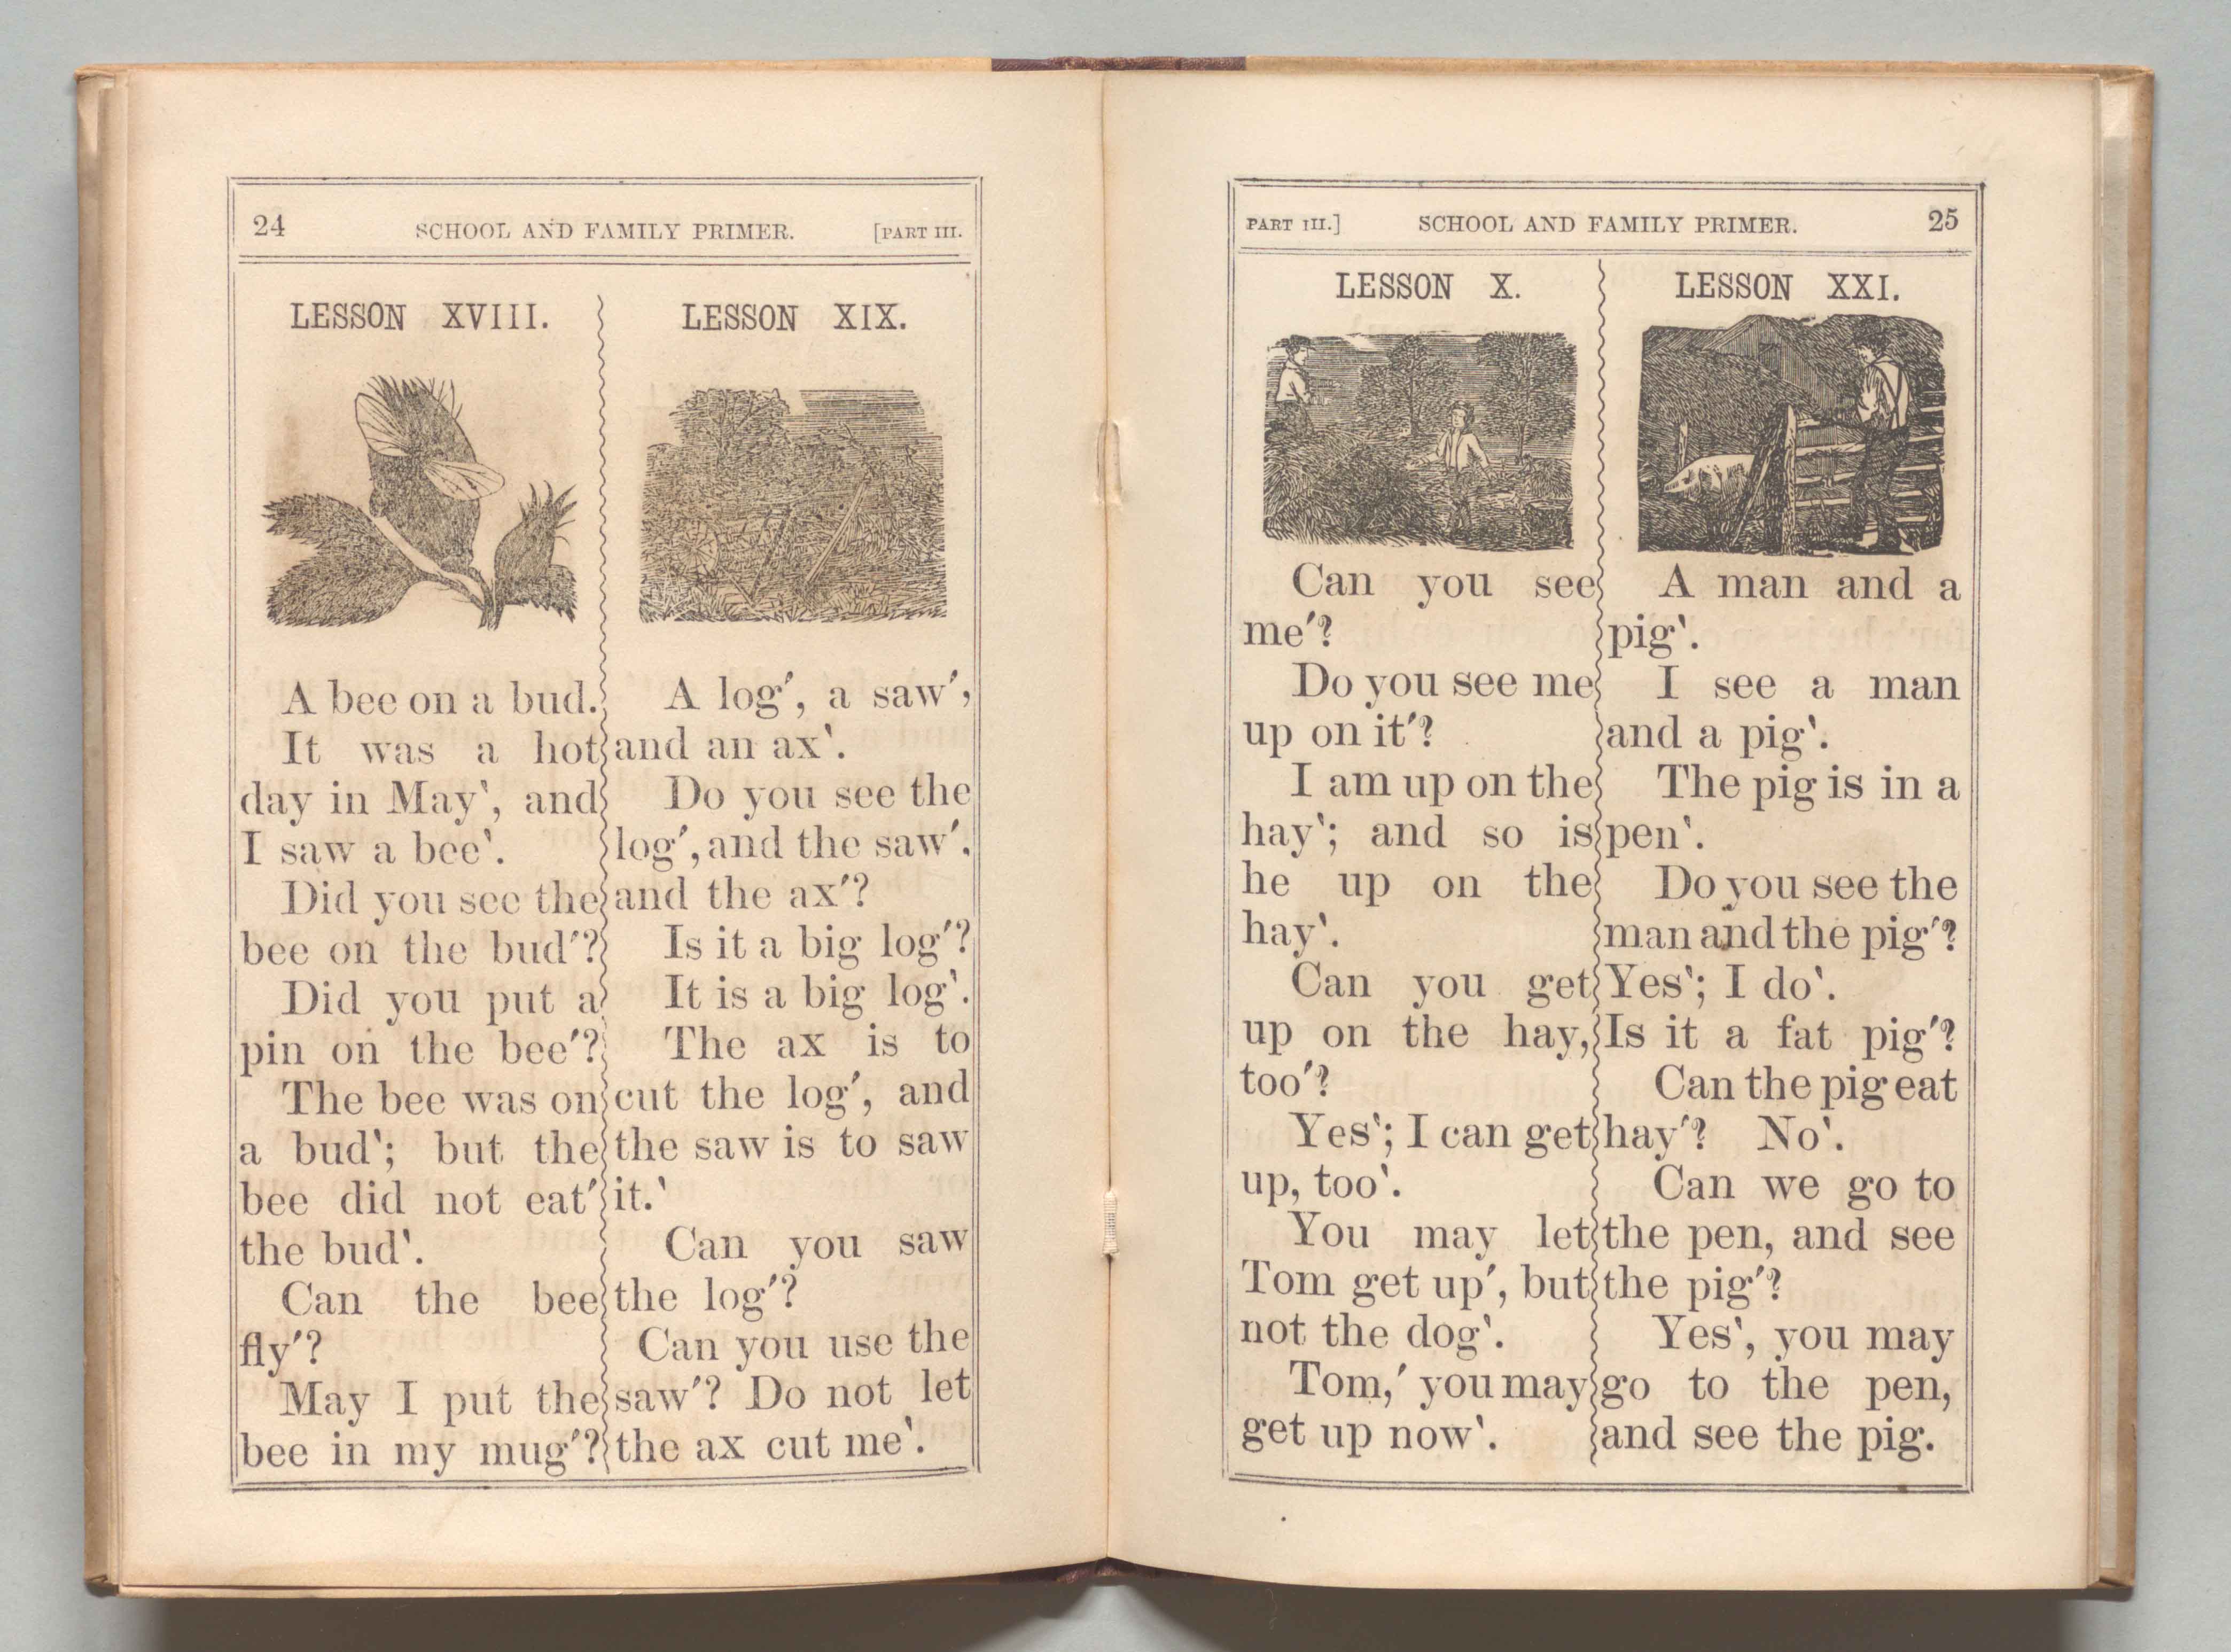 24 SCHOOL AND FAMILY PRIMER. [PART III.
LESSON XVIII.
A bee on a bud.
It was a hot
day in May‵, and
I saw a bee‵.
Did you see the
bee on the bud′?
Did you put a
pin on the bee′?
The bee was on
a bud‵; but the
bee did not eat′
the bud‵.
Can the bee
fly′?
May I put the
bee in my mug′?
LESSON XIX.
A log′, a saw′,
and an ax‵.
Do you see the
log′, and the saw′.
and the ax′?
Is it a big log′?
It is a big log‵.
The ax is to
cut the log′, and
the saw is to saw
it.‵
Can you saw
the log′?
Can you use the
saw′? Do not let
the ax cut me‵.
PART III.] SCHOOL AND FAMILY PRIMER. 25
LESSON X.
Can you see
me′?
Do you see me
up on it′?
I am up on the
hay‵; and so is
he up on the
hay‵.
Can you get
up on the hay,
too′?
Yes‵; I can get
up, too‵.
You may let
Tom get up′, but
not the dog‵.
Tom,′ you may
get up now‵.
LESSON XXI.
A man and a
pig‵.
I see a man
and a pig‵.
The pig is in a
pen‵.
Do you see the
man and the pig′?
Yes‵; I do‵.
Is it a fat pig′?
Can the pig eat
hay′? No‵.
Can we go to
the pen, and see
the pig′?
Yes‵, you may
go to the pen,
and see the pig.